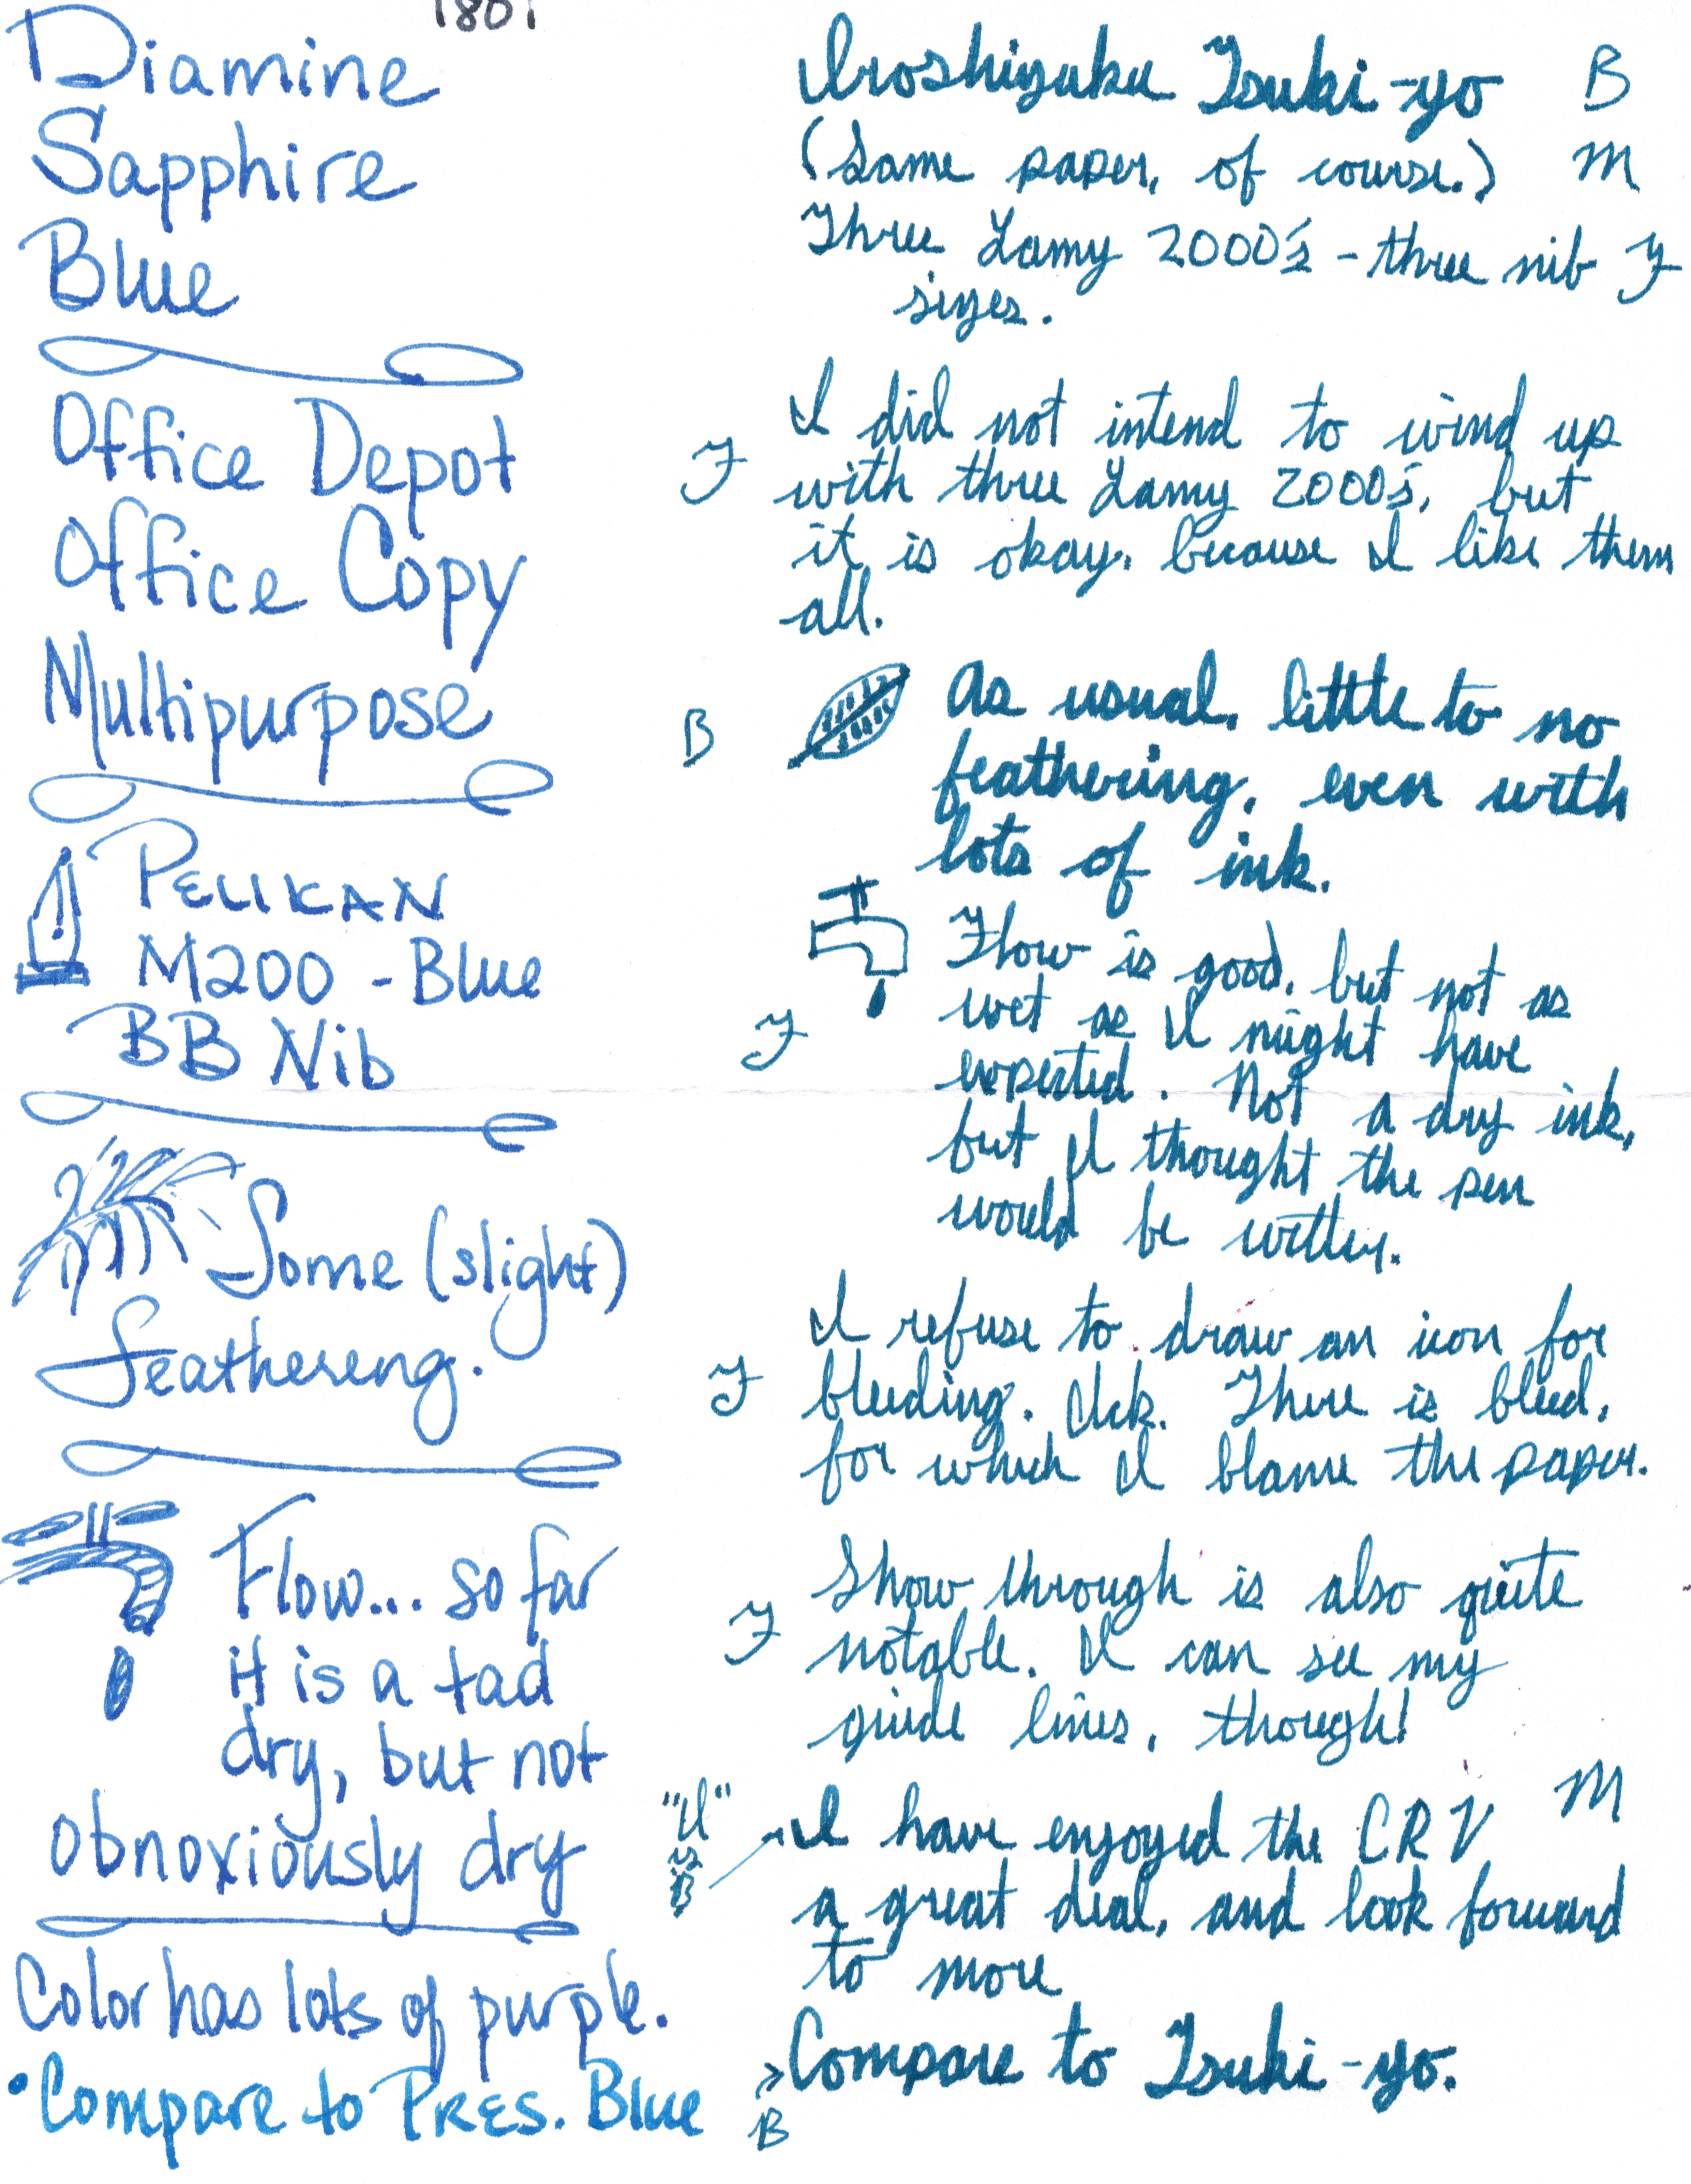 1801
Diamine
Sapphire
Blue
Office Depot
Office Copy
Multipurpose
PELIKAN
M200 - Blue
BB Nib
Some (slight)
feathereng.
Flow... so far
it is a tad
dry, but not
obnoxiously dry
Color has lots of purple.
• Compare to PRES. Blue
Iroshizuku Tsuki-yo B
(Same paper, of course.) M
Three Lamy 2000's - three nib F
sizes.
I did not intend to wind up
F with three Lamy 2000's, but
it is okay, because I like them
all.
B As usual, little to no
feathering, even with
lots of ink.
Flow is good, but not as
F wet as I might have
expected. Not a dry ink,
but I thought the pen
would be wetter.
I refuse to draw an icon for
F bleeding. Ick. There is bleed,
for which I blame the paper.
Show through is also quite
F notable. I can see my
guide lines, though!
"I" is B I have enjoyed the CRV M
a great deal, and look forward
to more
> Compare to Tsuki-yo.
B